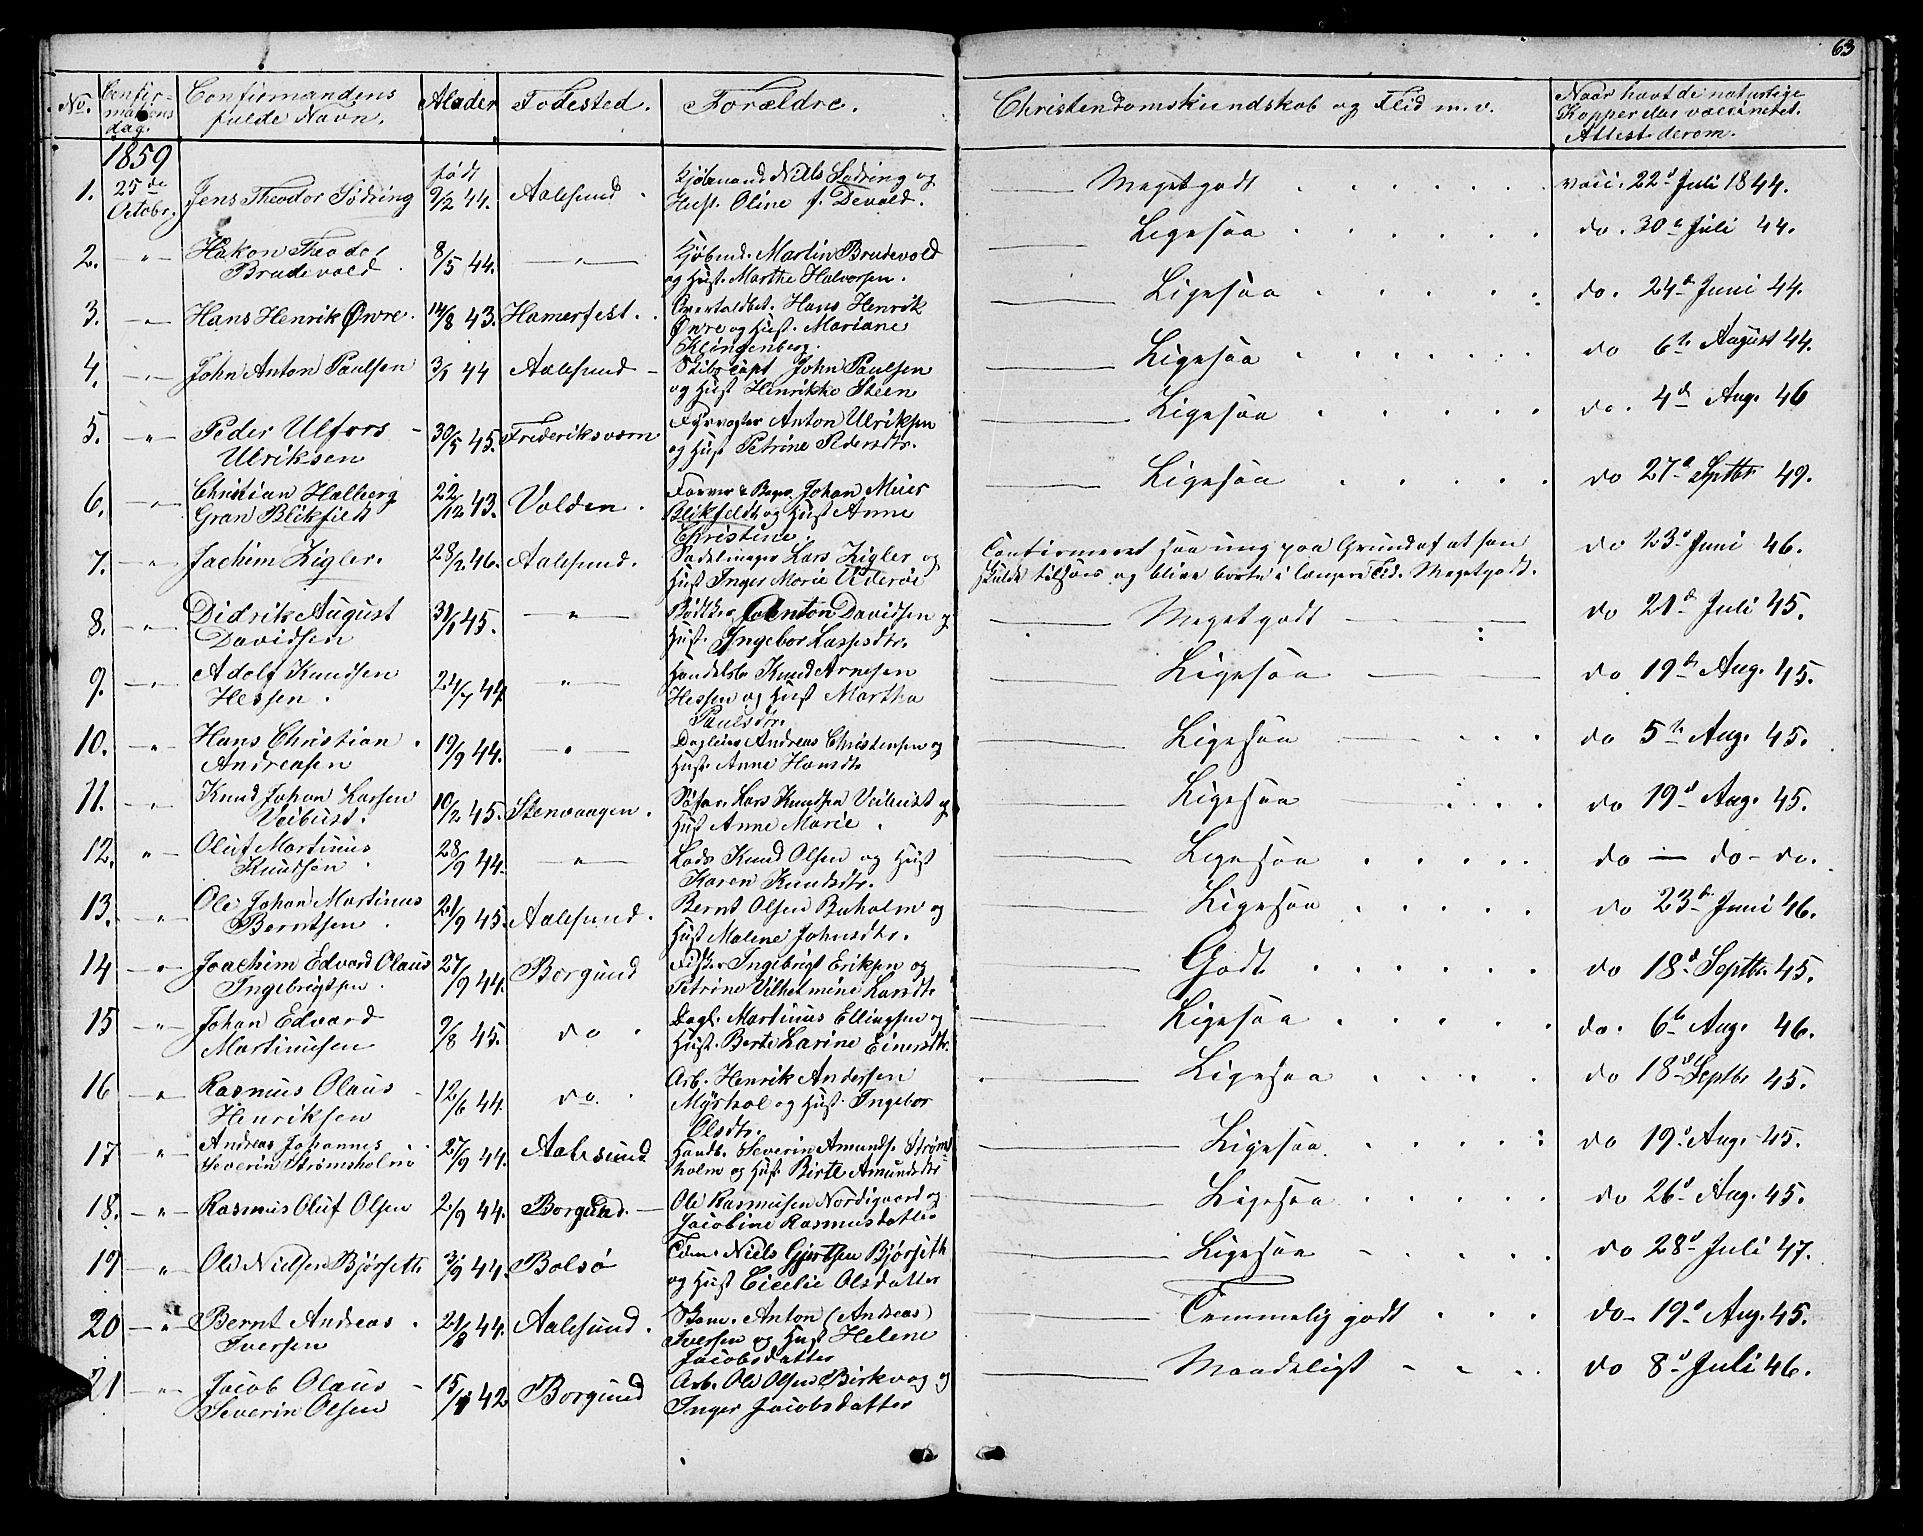 63
No. Confirmationsdag. Confirmandens fulde Navn. Alader Fødested. Forældre. Christendomskundskab og Flid m. v. Naar havt de naturlige Kopper eller vaccineret. Attest derom.
1859
1. 25de Octobr. Jens Theodor Sødring født 9/2 44. Aalesund. Kjøbmand Niels Sødring og Hust. Oline f. Devold. Meget godt vacc. 22d Juli 1844.
2. — " — Hakon Theodor Brudevold 8/5 44. — " — Kjøbmd. Martin Brudevold og Hust. Marthe Halvorsen. Ligesaa do. 30te Juli 44.
3. — " — Hans Henrik Øvre. 14/8 43. Hamerfest. Overtoldbet. Hans Henrik Øvre og Hust. Mariane Klingenberg. Ligesaa do. 24d Juni 44.
4. — " — John Anton Paulsen 3/1 44 Aalesund — Skibscapt John Paulsen og Hust Henrikke Steen Ligesaa do 6te August 44.
5. — " — Peder Ulfers Ulriksen 30/5 45. Frederiksværn Fyrvogter Anton Ulriksen og Hust Petrine Pedersdtr. Ligesaa do. 4d Aug. 46
6. — " — Christian Halberg Gran Blikfeldt 22/12 43. Volden. Farver & Bager Johan Meier Blikfeldt og Hust Anne Christine Ligesaa do 27d Septbr 49.
7. — " — Jachim Zigler. 28/2 46. Aalesund. Sadelmager Lars Zigler og Hust Inger Marie Uderöe Confirmeret saa ung paa Grund af at han skulde tilsøes og blive borte i længere Tid. Meget godt. do 23d Juni 46.
8. — " — Didrik August Davidsen 31/1 45. — " — Bødtker Anton Davidsen og Hust. Ingebor Larsdtr. Meget godt do 21d Juli 45.
9. — " — Adolf Knudsen Hessen. 21/7 44 — " — Handelsb Knud Arnesen Hessen og Hust Martha Paulsdtr. Ligesaa do 19de Aug. 45.
10. — " — Hans Christian Andreasen 19/9 44. — " — Dagleier Andreas Christensen og Hust. Anne Hansdtr Ligesaa do 5te Aug. 45.
11. — " — Knud Johan Larsen Veibust. 10/2 45. Stenvaagen. Søfar. Lars Knudsen Veibust og Hust Anne Marie. Ligesaa do 19d Aug. 45.
12. — " — Oluf Martinus Knudsen 28/9 44. — " — Lods Knud Olsen og Hust Karen Knudsdtr. Ligesaa do — do - do.
13. — " — Ole Johan Martinus Berntsen 21/9 45. Aalesund. Bernt Olsen Buholm og Hust Malene Johnsdtr. Ligesaa do 23de Juni 46.
14 — " — Joachim Edvard Olaus Ingebrigtsen. 27/9 44. Borgund Fisker Ingebrigt Eriksen og Petrine Vilhelmine Larsdtr Godt do 18d Septbr. 45.
15 — " — Johan Edvard Martinusen 9/8 45. do Dagl. Martinus Ellingsen og Hust. Berte Larine Einersdtr. Ligesaa do. 6te Aug. 46.
16 — " — Rasmus Olaus Henriksen 12/6 44. do. Arb. Henrik Andersen Myrhol og Hust. Ingebor Olsdtr. Ligesaa do 18d Septbr 45.
17 — " — Andreas Johannes Severin Strømsholm 27/9 44. Aalesund Handb. Severin Amunds. Strømsholm og Hust. Birte Amundsdtr Ligesaa do 19d Aug. 45.
18. — " — Rasmus Oluf Olsen 2/9 44. Borgund. — Ole Rasmusen Nordigaard og Jacobine Rasmusdatter Ligesaa do 26d Aug. 45.
19 — " — Ole Nielsen Bjørseth 3/9 44. Bolsö Tøm. Niels Gjertsen Bjørseth og Hust Cicelie Olsdatter Ligesaa do 28d Juli 47.
20 — " — Bernt Andreas Iversen 21/8 44. Aalesund. Anton (Andreas) Iversen og Hust Helene Jacobsdatter Temmelig godt do - 19d Aug. 45.
21 — " — Jacob Olaus Severin Olsen 15/1 42 Borgund Arb. Ole Olsen Birkvog og Inger Jacobsdatter Maadeligt do 8d Juli 46.